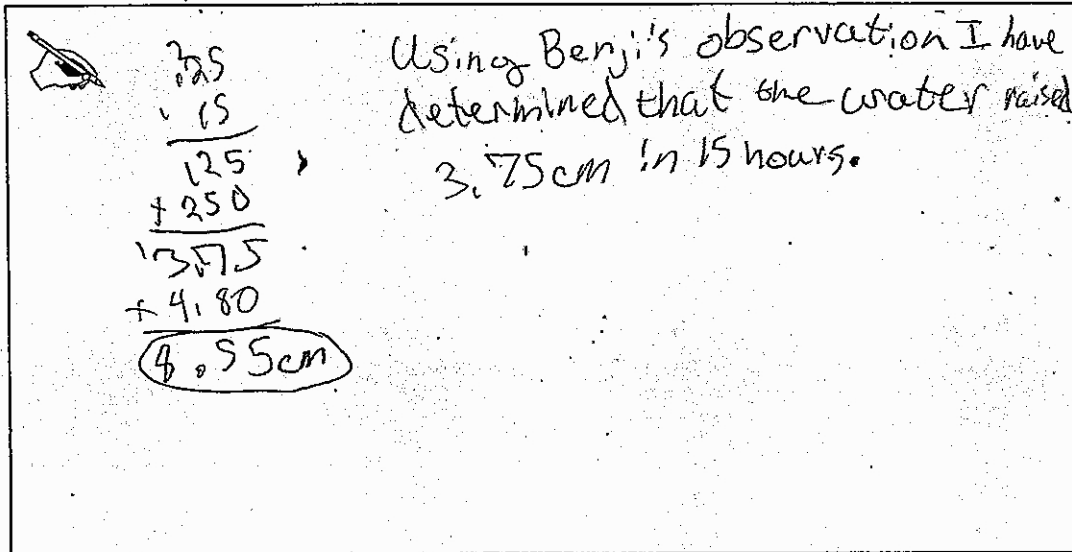 .25
15
125
+ 250
3.75
+ 4.80
8.55cm
Using Benji's observation I have
determined that the water raised
3.75cm in 15 hours.